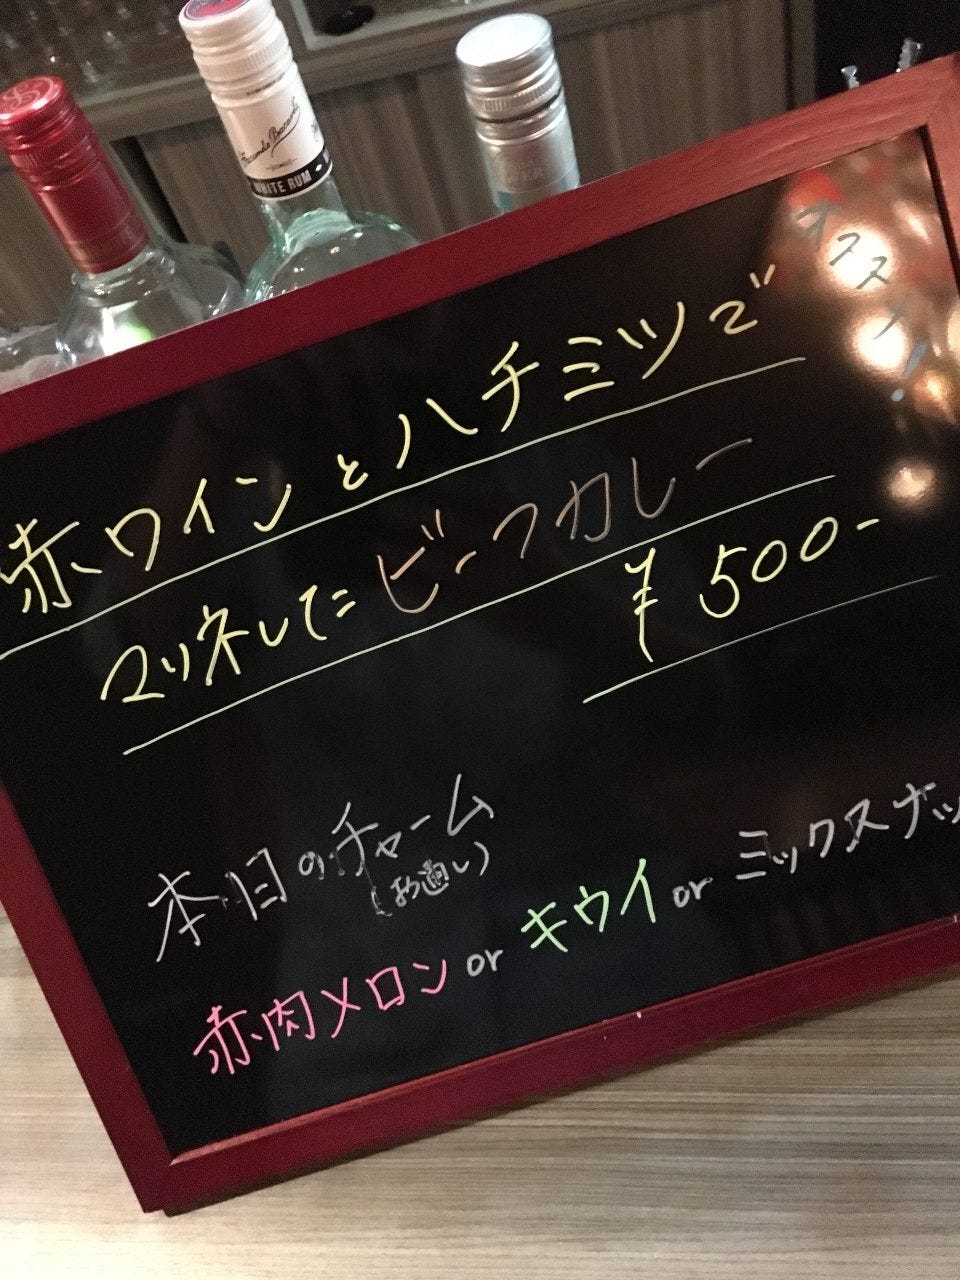 WHITE RUM
オススメ!
赤ワインとハチミツで
マリネしたビーフカレー
¥500-
本日のチャーム
(お通し)
赤肉メロン or キウイ or ミックスナッ